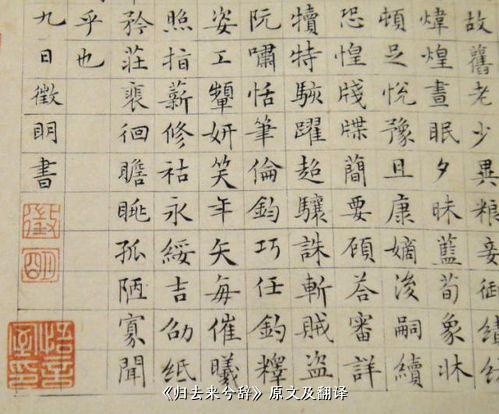 故舊老少異粮妾御績
煒煌晝眠夕昧藍荀象牀
頓足悅豫且康嫡後嗣續
恐惶牋牒簡要顧荅審詳
犢特駭躍超驤誅斬賊盜
阮嘯恬筆倫鈞巧任釣釋
姿工顰妍笑年矢每催曦
照指薪修祜永綏吉劭紙
矜莊裴徊瞻眺孤陋寡聞
乎也
九日徵明書
徵
明
悟言室印
《归去来兮辞》原文及翻译